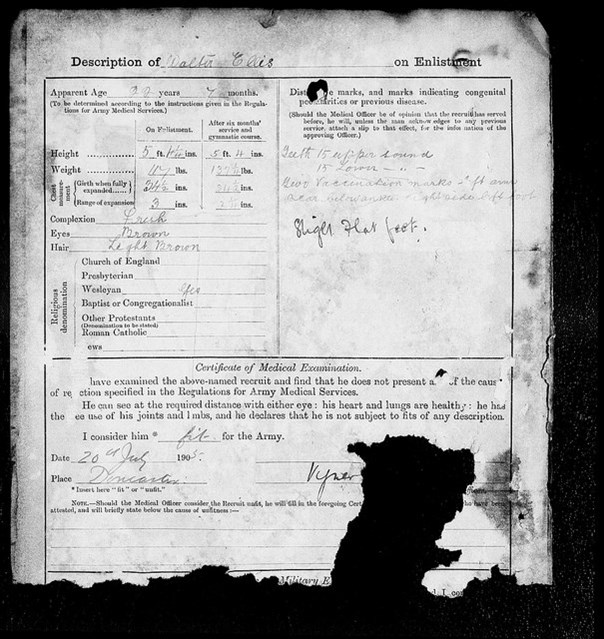 Description of Walter Ellis on Enlistment
Apparent Age years 7 months.
(To be determined according to the instructions given in the Regulations for Army Medical Services.)
On Enlistment.
After six months' service and gymnastic course.
Height 5 ft. ins. 5 ft. 4 ins.
Weight lbs. lbs.
Chest measurement
Girth when fully expanded 34½ ins. ins.
Range of expansion 3 ins. ins.
Complexion Fresh
Eyes Brown
Hair Light Brown
Religious denomination
Church of England
Presbyterian
Wesleyan Yes
Baptist or Congregationalist
Other Protestants
(Denomination to be stated)
Roman Catholic
ews
marks, and marks indicating congenital
or previous disease.
(Should the Medical Officer be of opinion that the recruit has served
before, he will, unless the man acknowledges to any previous
service, attach a slip to that effect, for the information of the
approving Officer.)
Teeth 15 upper sound
15 Lower - " -
Two Vaccination marks left arm
Scar
Slight Flat feet.
Certificate of Medical Examination.
have examined the above-named recruit and find that he does not present a of the caus
of re ction specified in the Regulations for Army Medical Services.
He can see at the required distance with either eye: his heart and lungs are healthy: he has
the ee use of his joints and limbs, and he declares that he is not subject to fits of any description.
I consider him * fit for the Army.
Date 20th July 1905.
Place Doncaster.
*Insert here "fit" or "unfit."
NOTE.—Should the Medical Officer consider the Recruit unfit, he will fill in the foregoing Cert have been
attested, and will briefly state below the cause of unfitness:—
Military E
d, I con